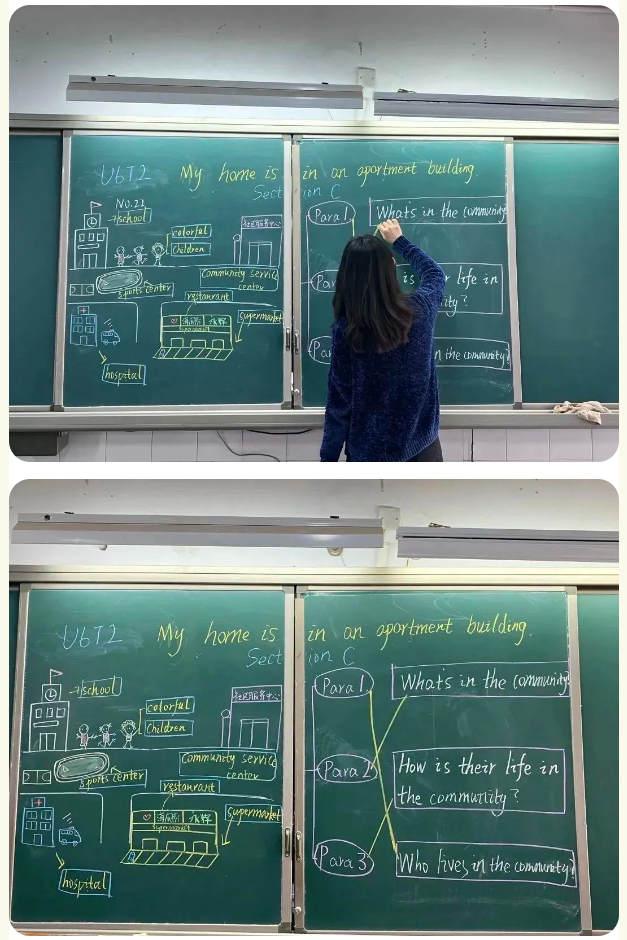 U6T2 My home is in an apartment building.
Section C
NO.21
school
colorful
Children
社区服务中心
Community service
center
sports center
restaurant
supermarket
supermarket
永辉
hospital
Para 1
What's in the community
Para
is r life in
ity?
Par
n the community?
U6T2 My home is in an apartment building.
Section C
school
colorful
Children
社区服务中心
Community service
center
sports center
restaurant
supermarket
supermarket
永辉
hospital
Para 1
What's in the community
Para 2
How is their life in
the community?
Para 3
Who lives in the community?